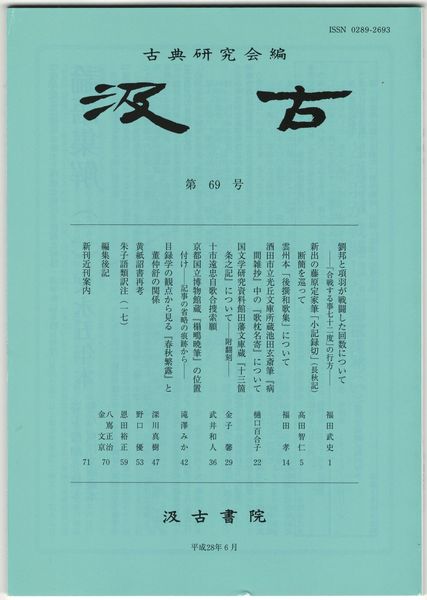 ISSN 0289-2693
古典研究会編
汲古
第 69 号
劉邦と項羽が戦闘した回数について
――「合戦する事七十二度」の行方―― 福田武史 1
新出の藤原定家筆「小記録切」(長秋記)
断簡を巡って 高田智仁 5
雲州本「後撰和歌集」について 福田 孝 14
酒田市立光丘文庫所蔵池田玄斎筆『病
間雑抄』中の「歌枕名寄」について 樋口百合子 22
国文学研究資料館田藩文庫蔵『十三箇
条之記』について――附翻刻―― 金子 馨 29
十市遠忠自歌合捜索願 武井和人 36
京都国立博物館蔵『榻鴫暁筆』の位置
付け――記事の省略の痕跡から―― 滝澤みか 42
目録学の観点から見る『春秋繁露』と
董仲舒の関係 深川真樹 47
黄紙詔書再考 野口 優 53
朱子語類訳注(一七) 恩田裕正 59
編集後記 八嶌正治 金 文京 70
新刊近刊案内 71
汲古書院
平成28年6月